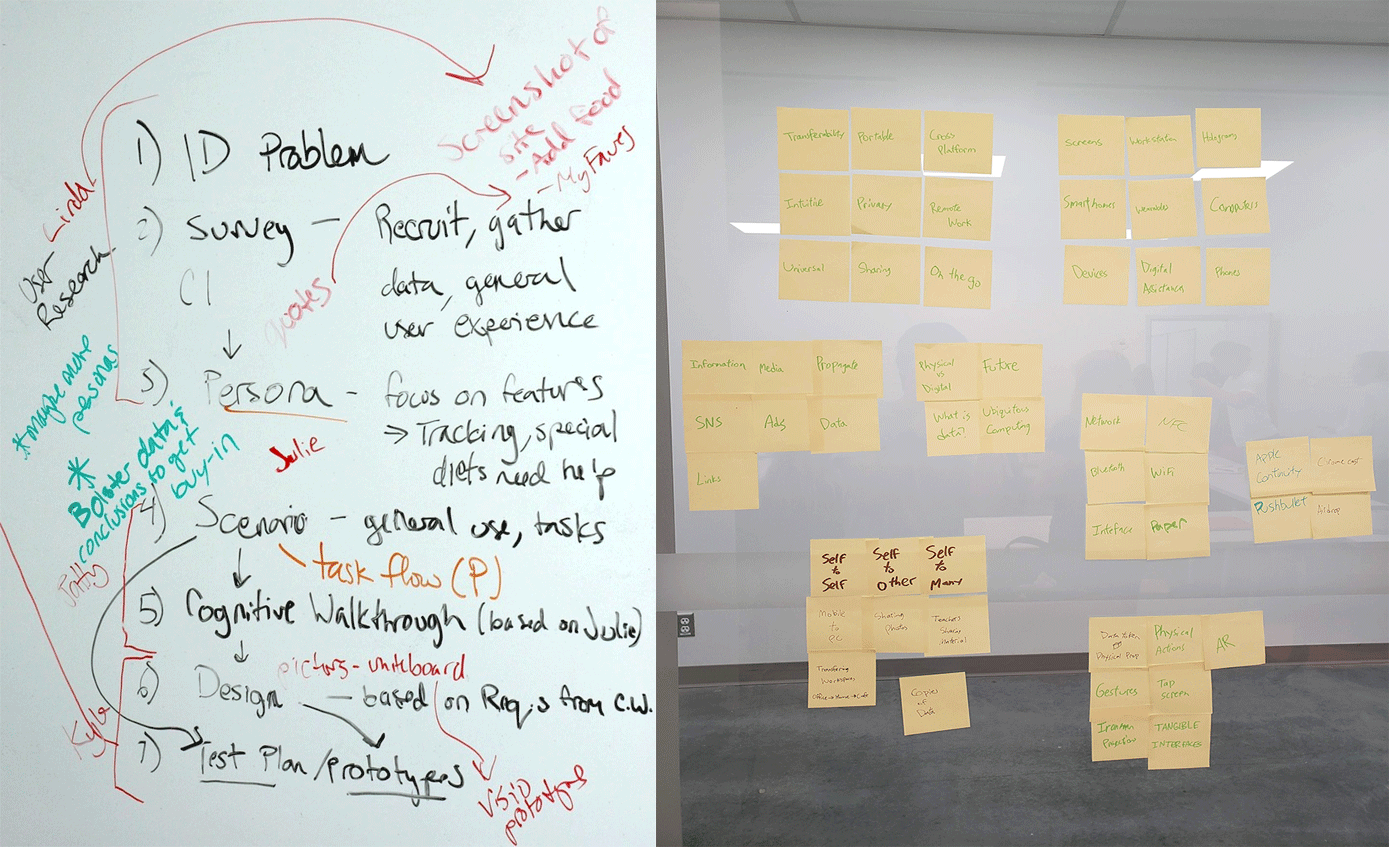 Screenshot of
site
- Add Food
- My Faves
1) ID Problem
Linda
User
Research
2) Survey - Recruit, gather
CI
data, general
user experience
quotes
3) Persona - focus on features
→ Tracking, special
diets need help
Julie
* Maybe more
personas
* Bolster data &
conclusions to get
buy-in
4) Scenario - general use, tasks
task flow (P)
5) Cognitive Walkthrough (based on Julie)
pictors - whiteboard
6) Design - based on Req's from C.W.
Kyla
7) Test Plan/Prototypes
Visio
prototypes
Transferability
Portable
Cross
Platform
Intuitive
Privacy
Remote
Work
Universal
Sharing
On the go
Screens
Workstation
Holograms
Smarthomes
Wearables
Computers
Devices
Digital
Assistance
Phones
Information
Media
Propagate
SNS
Ads
Data
Links
Physical
vs
Digital
Future
What is
data?
Ubiquitous
Computing
Network
NFC
Bluetooth
WiFi
Inteface
Paper
Apple
Continuity
Chromecast
Pushbullet
Airdrop
Self
to
Self
Self
to
Other
Self
to
Many
Mobile
to
PC
Sharing
Photos
Teachers
Sharing
Material
Transferring
Workspaces
Office → Home → Cafe
Copies
of
Data
Data Token
or
Physical Prop
Physical
Actions
AR
Gestures
Tap
screen
Ironman
Projection
TANGIBLE
INTERFACES